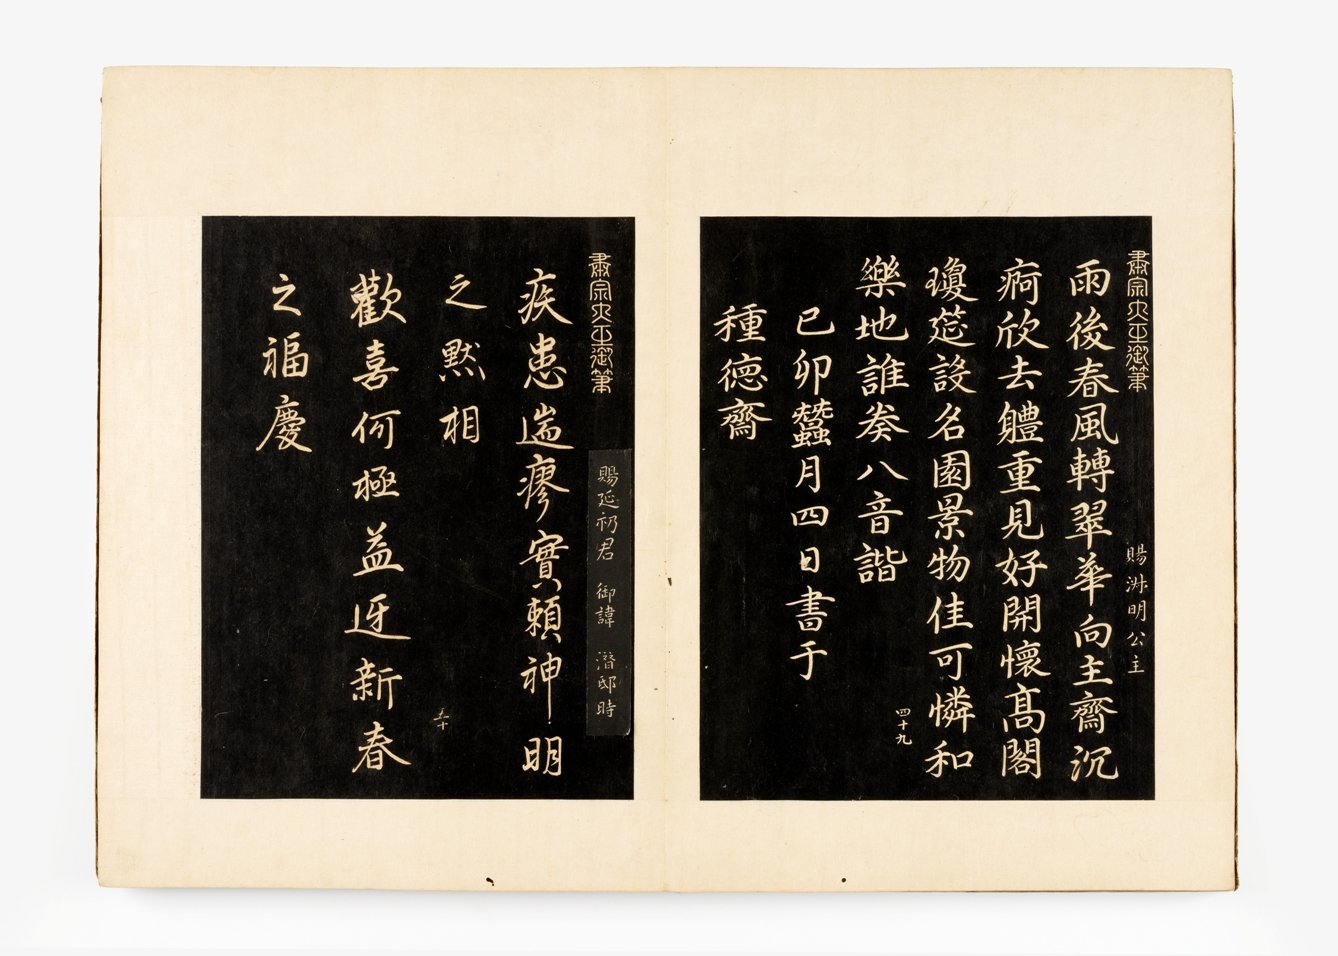 肅宗大王御筆
賜淑明公主
雨後春風轉翠華向主齋沉
痾欣去軆重見好開懷高閣
瓊筵設名園景物佳可憐和
四十九
樂地誰奏八音諧
己卯蠶月四日書于
種德齋
肅宗大王御筆
賜延礽君 御諱 潛邸時
疾患遄瘳實賴神明
之黙相
五十
歡喜何極益迓新春
之福慶